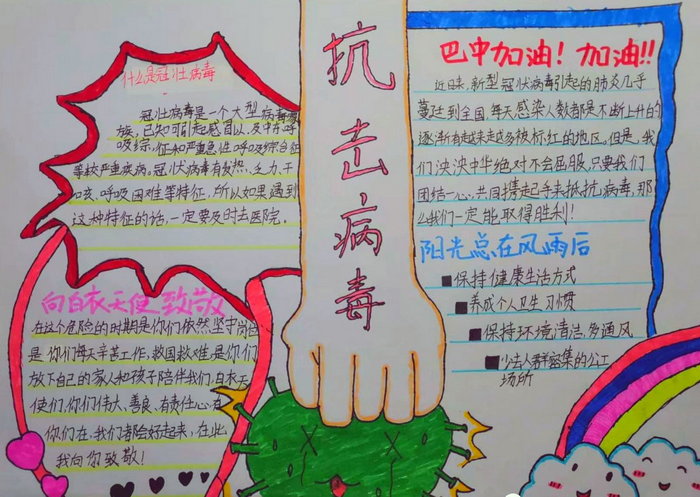 什么是冠壮病毒
冠状病毒是一个大型病毒家
族,已知可引起感冒以及中东呼
吸综征和严重急性呼吸综合征
等较严重疾病。冠状病毒有发热、乏力、干
咳、呼吸困难等特征,所以如果遇到
这种特征的话,一定要及时去医院。
向白衣天使致敬
在这个危险的时期是你们依然坚守岗位
是你们每天辛苦工作,救国救难,是你们
放下自己的家人和孩子陪伴我们,白衣天
使们,你们伟大、善良、有责任心,有
你们在,我们都会好起来,在此
我向你致敬!
抗击病毒
巴中加油!加油!!
近日来,新型冠状病毒引起的肺炎几乎
蔓延到全国,每天感染人数都是不断上升的
逐渐有越来越多被标红的地区。但是,我
们泱泱中华绝对不会屈服,只要我们
团结一心,共同携起手来抵抗病毒,那
么我们一定能取得胜利!
阳光总在风雨后
保持健康生活方式
养成个人卫生习惯
保持环境清洁,多通风
少去人群密集的公工
场所